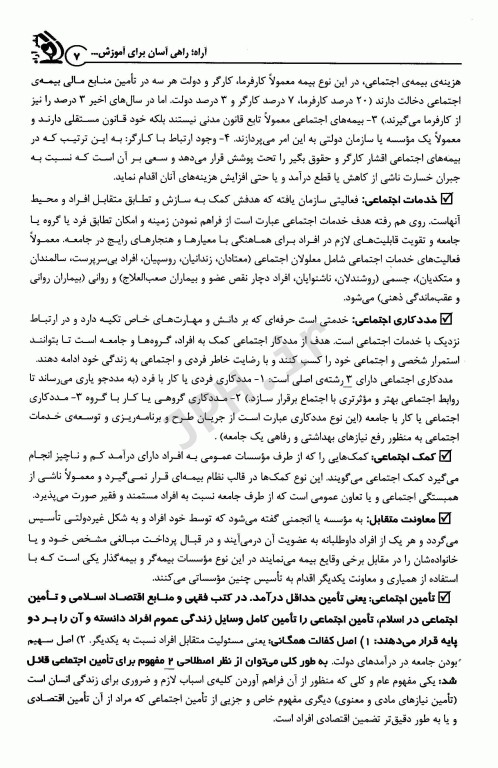 آراه؛ راهی آسان برای آموزش... ۷
هزینه‌ی بیمه‌ی اجتماعی، در این نوع بیمه معمولاً کارفرما، کارگر و دولت هر سه در تأمین منابع مالی بیمه‌ی
اجتماعی دخالت دارند (۲۰ درصد کارفرما، ۷ درصد کارگر و ۳ درصد دولت. اما در سال‌های اخیر ۳ درصد را نیز
از کارفرما می‌گیرند.) ۳- بیمه‌های اجتماعی معمولاً تابع قانون مدنی نیستند بلکه خود قانون مستقلی دارند و
معمولاً یک مؤسسه یا سازمان دولتی به این امر می‌پردازند. ۴- وجود ارتباط با کارگر: به این ترتیب که در
بیمه‌های اجتماعی اقشار کارگر و حقوق بگیر را تحت پوشش قرار می‌دهد و سعی بر آن است که نسبت به
جبران خسارت ناشی از کاهش یا قطع درآمد و یا حتی افزایش هزینه‌های آنان اقدام نماید.
☑ خدمات اجتماعی: فعالیتی سازمان یافته که هدفش کمک به سازش و تطابق متقابل افراد و محیط
آنهاست. روی هم رفته هدف خدمات اجتماعی عبارت است از فراهم نمودن زمینه و امکان تطابق فرد یا گروه یا
جامعه و تقویت قابلیت‌های لازم در افراد برای هماهنگی با معیارها و هنجارهای رایج در جامعه. معمولاً
فعالیت‌های خدمات اجتماعی شامل معلولان اجتماعی (معتادان، زندانیان، روسپیان، افراد بی‌سرپرست، سالمندان
و متکدیان)، جسمی (روشندلان، ناشنوایان، افراد دچار نقص عضو و بیماران صعب‌العلاج) و روانی (بیماران روانی
و عقب‌ماندگی ذهنی) می‌شود.
☑ مددکاری اجتماعی: خدمتی است حرفه‌ای که بر دانش و مهارت‌های خاص تکیه دارد و در ارتباط
نزدیک با خدمات اجتماعی است. هدف از مددکار اجتماعی کمک به افراد، گروه‌ها و جامعه است تا بتوانند
استمرار شخصی و اجتماعی خود را کسب کنند و با رضایت خاطر فردی و اجتماعی به زندگی خود ادامه دهند.
مددکاری اجتماعی دارای ۳ رشته‌ی اصلی است: ۱- مددکاری فردی یا کار با فرد (به مددجو یاری می‌رساند تا
روابط اجتماعی بهتر و مؤثرتری با اجتماع برقرار سازد.) ۲- مددکاری گروهی یا کار با گروه ۳- مددکاری
اجتماعی یا کار با جامعه (این نوع مددکاری عبارت است از جریان طرح و برنامه‌ریزی و توسعه‌ی خدمات
اجتماعی به منظور رفع نیازهای بهداشتی و رفاهی یک جامعه) .
☑ کمک اجتماعی: کمک‌هایی را که از طرف مؤسسات عمومی به افراد دارای درآمد کم و ناچیز انجام
می‌گیرد کمک اجتماعی می‌گویند. این نوع کمک‌ها در قالب نظام بیمه‌ای قرار نمی‌گیرد و معمولاً ناشی از
همبستگی اجتماعی و یا تعاون عمومی است که از طرف جامعه نسبت به افراد مستمند و فقیر صورت می‌پذیرد.
☑ معاونت متقابل: به مؤسسه یا انجمنی گفته می‌شود که توسط خود افراد و به شکل غیردولتی تأسیس
می‌گردد و هر یک از افراد داوطلبانه به عضویت آن درمی‌آیند و در قبال پرداخت مبالغی مشخص خود و یا
خانواده‌شان را در مقابل برخی وقایع بیمه می‌نمایند در این نوع مؤسسات بیمه‌گر و بیمه‌گذار یکی است که با
استفاده از همیاری و معاونت یکدیگر اقدام به تأسیس چنین مؤسساتی می‌کنند.
☑ تأمین اجتماعی: یعنی تأمین حداقل درآمد. در کتب فقهی و منابع اقتصاد اسلامی و تأمین
اجتماعی در اسلام، تأمین اجتماعی را تأمین کامل وسایل زندگی عموم افراد دانسته و آن را بر دو
پایه قرار می‌دهند: ۱) اصل کفالت همگانی: یعنی مسئولیت متقابل افراد نسبت به یکدیگر. ۲) اصل سهیم
بودن جامعه در درآمدهای دولت. به طور کلی می‌توان از نظر اصطلاحی ۲ مفهوم برای تأمین اجتماعی قائل
شد: یکی مفهوم عام و کلی که منظور از آن فراهم آوردن کلیه‌ی اسباب لازم و ضروری برای زندگی انسان است
(تأمین نیازهای مادی و معنوی) دیگری مفهوم خاص و جزیی از تأمین اجتماعی که مراد از آن تأمین اقتصادی
و یا به طور دقیق‌تر تضمین اقتصادی افراد است.